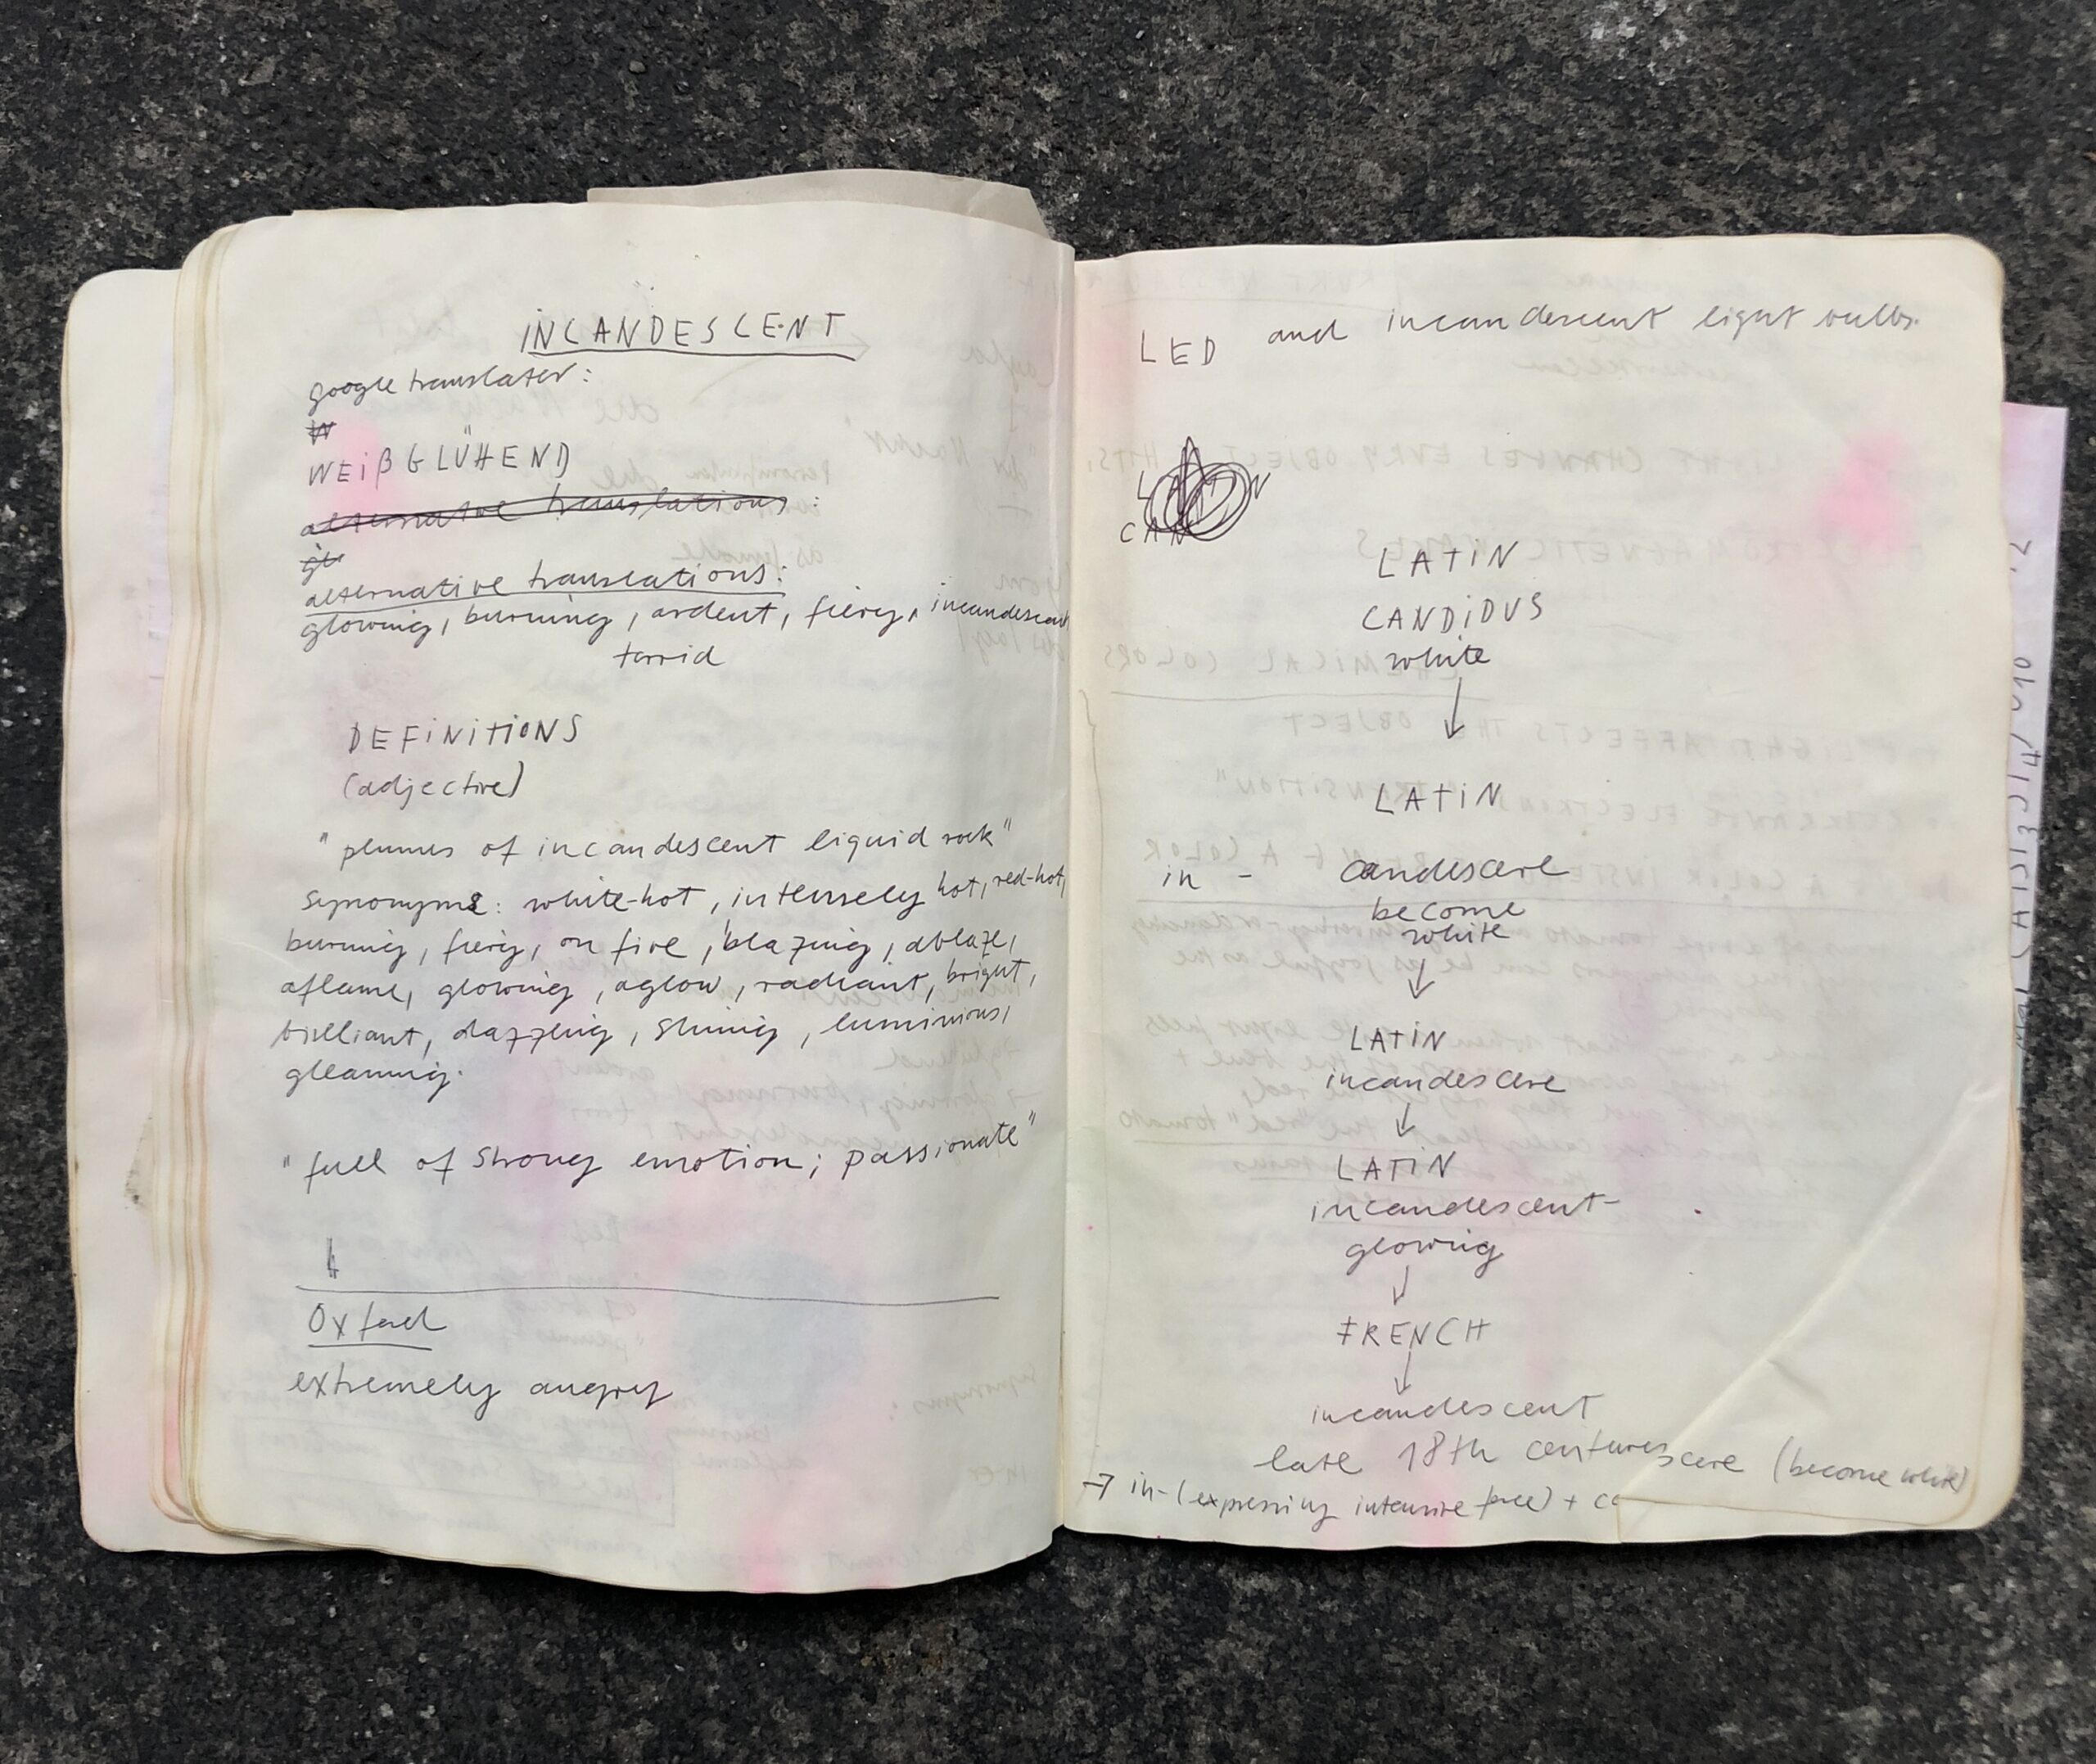 INCANDESCENT
google translater:
W
WEIßGLÜHEND
alternative translations:
gl
alternative translations:
glowing, burning, ardent, fiery, incandescent
torrid
DEFINITIONS
(adjective)
"plumes of incandescent liquid rock"
synonyms: white-hot, intensely hot, red-hot,
burning, fiery, on fire, blazing, ablaze,
aflame, glowing, aglow, radiant, bright,
brilliant, dazzling, shining, luminious,
gleaming.
"full of strong emotion; passionate"
Oxford
extremely angry
LED and incandescent light bulbs.
LATIN
CAN
LATIN
CANDIDUS
white
LATIN
in - candescere
become
white
LATIN
incandescere
LATIN
incandescent-
glowing
FRENCH
incandescent
late 18th century
→ in-(expressing intensive force) + ca scere (become white)